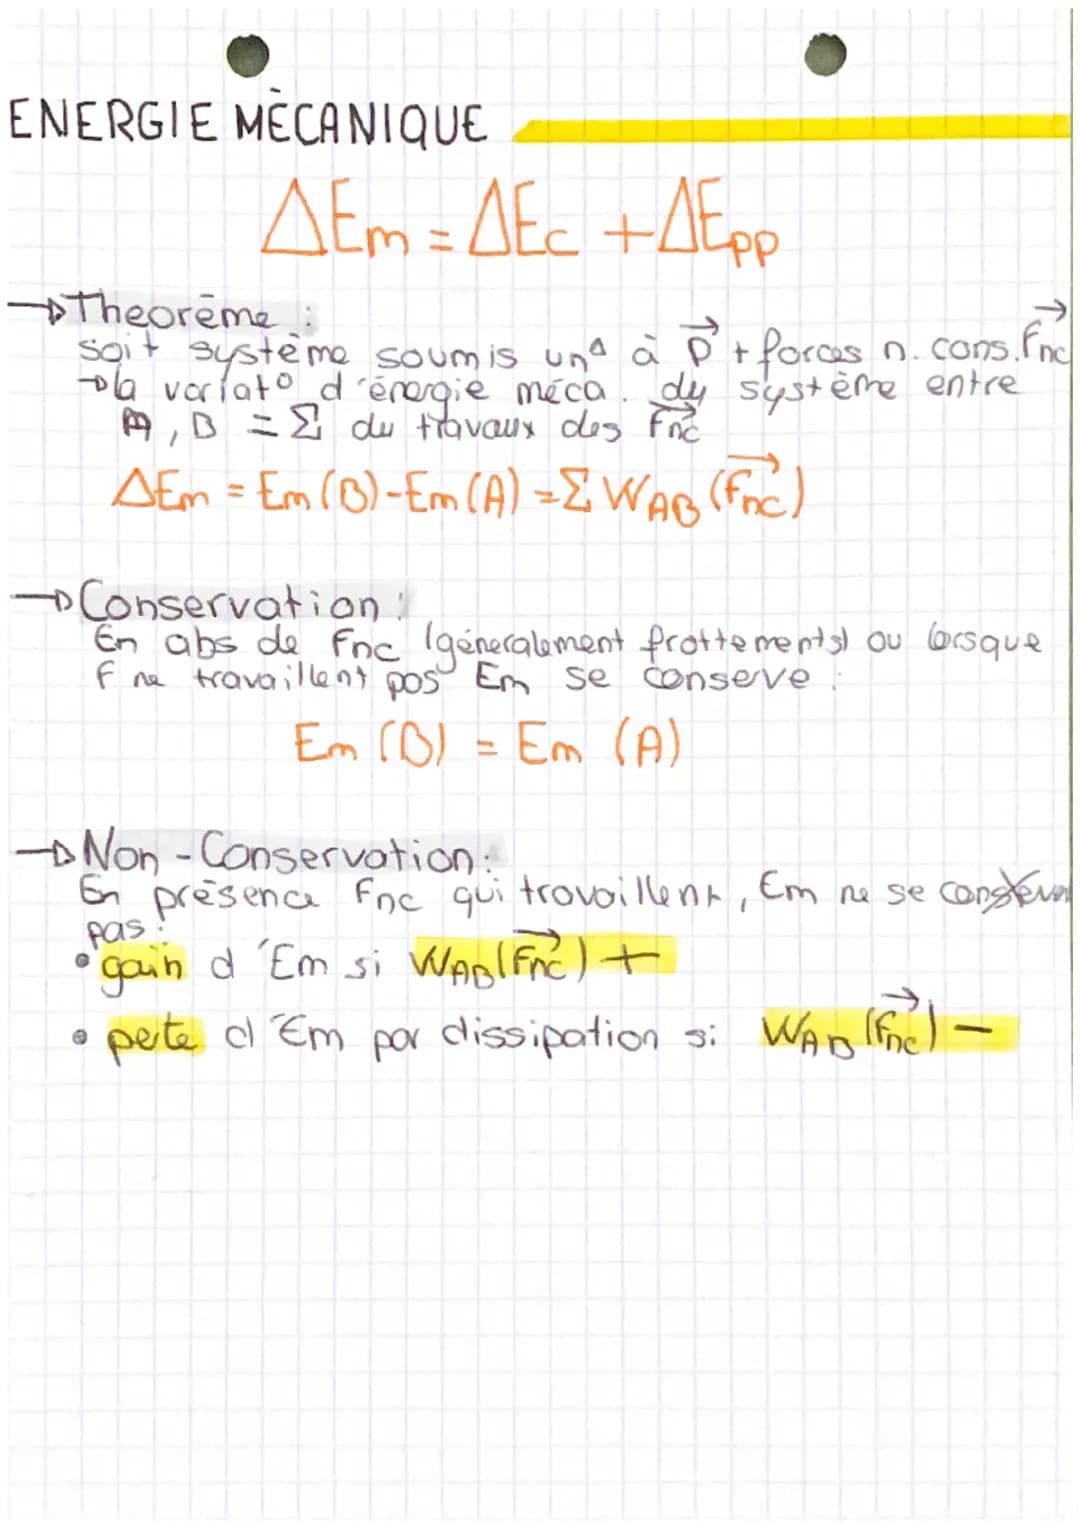 ENERGIE MÉCANIQUE
ΔEm = ΔEc + ΔEpp
→ Theorème :
soit système soumis unᐞ à P⃗ + forces n. cons. Fnc⃗
→ la variat° d'énergie méca. du système entre
A, B = Σ du travaux des Fnc⃗
ΔEm = Em (B) - Em (A) = Σ WAB (Fnc⃗)
→ Conservation :
En abs de Fnc (généralement frottements) ou lorsque
F ne travaillent pas Em se conserve :
Em (B) = Em (A)
→ Non - Conservation :
En présence Fnc qui travaillent, Em ne se
pas :
• gain d'Em si WAB (Fnc⃗) +
• perte d'Em par dissipation si WAB (Fnc⃗) -